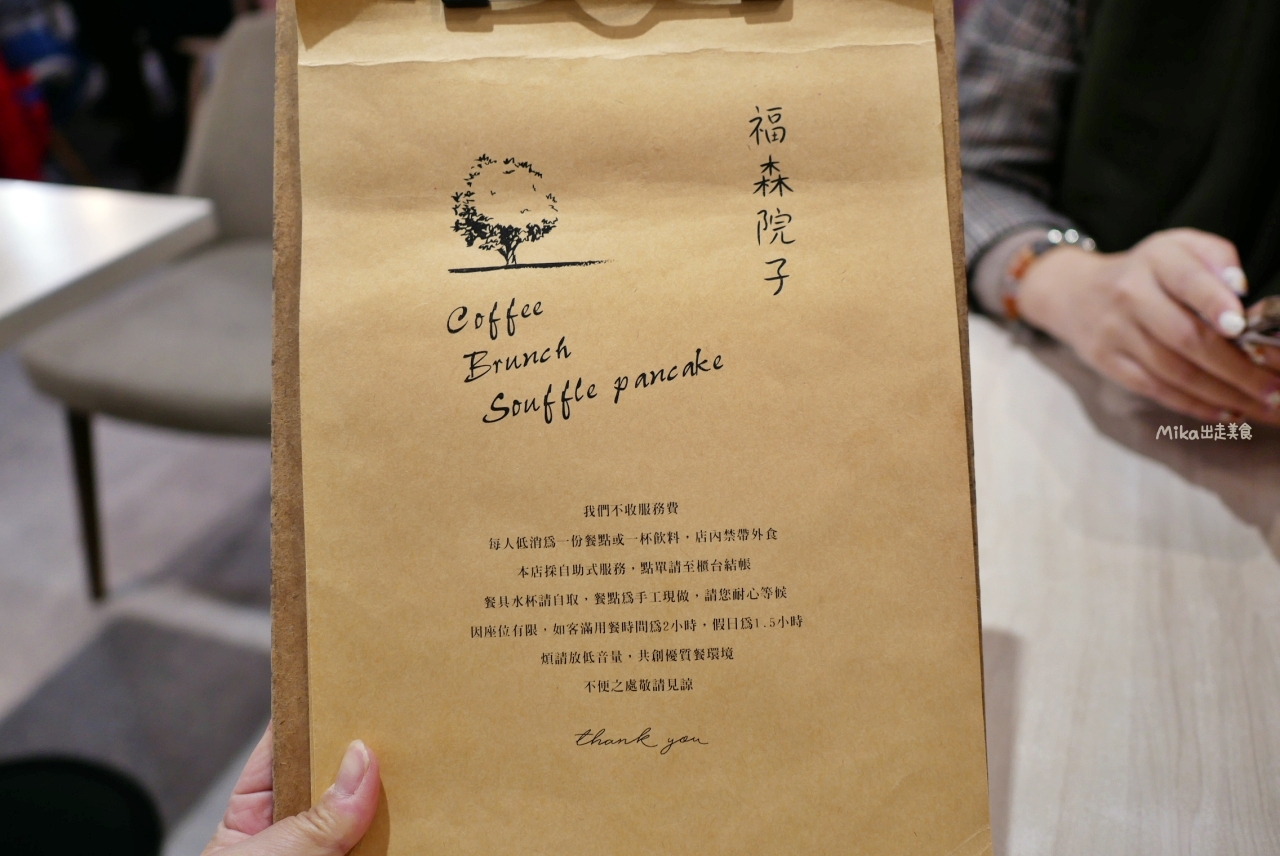 福森院子
Coffee
Brunch
Souffle pancake
我們不收服務費
每人低消為一份餐點或一杯飲料，店內禁帶外食
本店採自助式服務，點單請至櫃台結帳
餐具水杯請自取，餐點為手工現做，請您耐心等候
因座位有限，如客滿用餐時間為2小時，假日為1.5小時
煩請放低音量，共創優質餐環境
不便之處敬請見諒
thank you
Mika出走美食